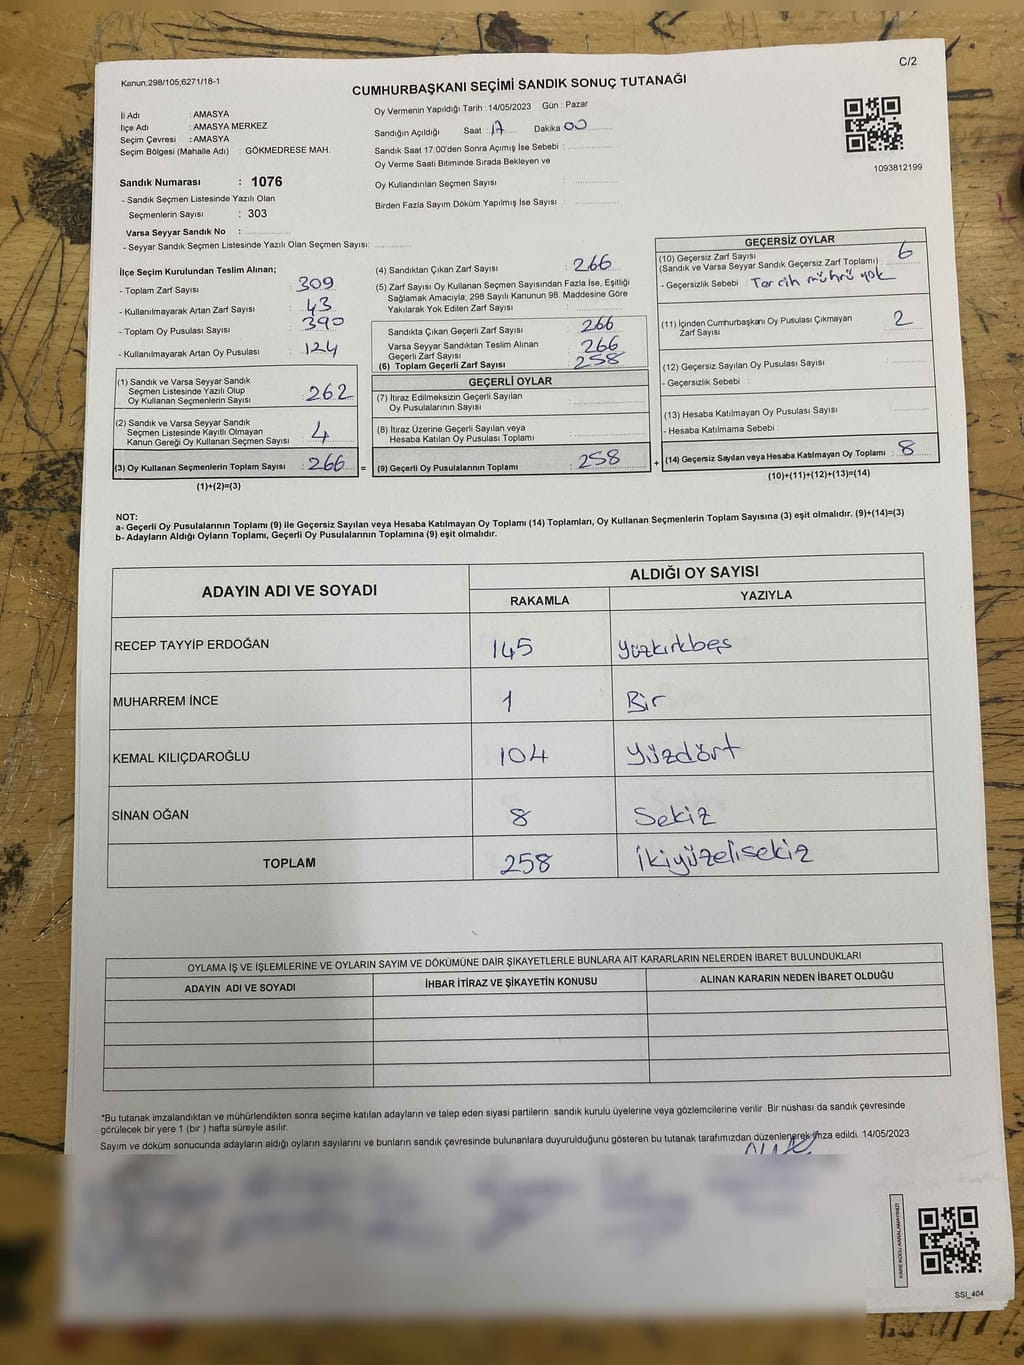 C/2
Kanun;298/105;6271/18-1
CUMHURBAŞKANI SEÇİMİ SANDIK SONUÇ TUTANAĞI
İl Adı : AMASYA
İlçe Adı : AMASYA MERKEZ
Seçim Çevresi : AMASYA
Seçim Bölgesi (Mahalle Adı) : GÖKMEDRESE MAH.
Sandık Numarası : 1076
- Sandık Seçmen Listesinde Yazılı Olan
Seçmenlerin Sayısı : 303
Varsa Seyyar Sandık No :
- Seyyar Sandık Seçmen Listesinde Yazılı Olan Seçmen Sayısı:
Oy Vermenin Yapıldığı Tarih : 14/05/2023 Gün : Pazar
Sandığın Açıldığı Saat : 17 Dakika 00
Sandık Saat 17:00'den Sonra Açımış İse Sebebi :
Oy Verme Saati Bitiminde Sırada Bekleyen ve
Oy Kullandırılan Seçmen Sayısı :
Birden Fazla Sayım Döküm Yapılmış İse Sayısı :
1093812199
İlçe Seçim Kurulundan Teslim Alınan;
- Toplam Zarf Sayısı : 309
- Kullanılmayarak Artan Zarf Sayısı : 43
- Toplam Oy Pusulası Sayısı : 390
- Kullanılmayarak Artan Oy Pusulası : 124
(1) Sandık ve Varsa Seyyar Sandık
Seçmen Listesinde Yazılı Olup
Oy Kullanan Seçmenlerin Sayısı : 262
(2) Sandık ve Varsa Seyyar Sandık
Seçmen Listesinde Kayıtlı Olmayan
Kanun Gereği Oy Kullanan Seçmen Sayısı : 4
(3) Oy Kullanan Seçmenlerin Toplam Sayısı : 266 =
(1)+(2)=(3)
(4) Sandıktan Çıkan Zarf Sayısı : 266
(5) Zarf Sayısı Oy Kullanan Seçmen Sayısından Fazla İse, Eşitliği
Sağlamak Amacıyla; 298 Sayılı Kanunun 98. Maddesine Göre
Yakılarak Yok Edilen Zarf Sayısı :
Sandıkta Çıkan Geçerli Zarf Sayısı : 266
Varsa Seyyar Sandıktan Teslim Alınan
Geçerli Zarf Sayısı : 266
(6) Toplam Geçerli Zarf Sayısı : 258
GEÇERLİ OYLAR
(7) İtiraz Edilmeksizin Geçerli Sayılan
Oy Pusulalarının Sayısı :
(8) İtiraz Üzerine Geçerli Sayılan veya
Hesaba Katılan Oy Pusulası Toplamı :
(9) Geçerli Oy Pusulalarının Toplamı : 258 +
GEÇERSİZ OYLAR
(10) Geçersiz Zarf Sayısı
(Sandık ve Varsa Seyyar Sandık Geçersiz Zarf Toplamı) : 6
- Geçersizlik Sebebi : Tercih mührü yok
(11) İçinden Cumhurbaşkanı Oy Pusulası Çıkmayan
Zarf Sayısı : 2
(12) Geçersiz Sayılan Oy Pusulası Sayısı :
- Geçersizlik Sebebi :
(13) Hesaba Katılmayan Oy Pusulası Sayısı :
- Hesaba Katılmama Sebebi :
(14) Geçersiz Sayılan veya Hesaba Katılmayan Oy Toplamı : 8
(10)+(11)+(12)+(13)=(14)
NOT:
a- Geçerli Oy Pusulalarının Toplamı (9) ile Geçersiz Sayılan veya Hesaba Katılmayan Oy Toplamı (14) Toplamları, Oy Kullanan Seçmenlerin Toplam Sayısına (3) eşit olmalıdır. (9)+(14)=(3)
b- Adayların Aldığı Oyların Toplamı, Geçerli Oy Pusulalarının Toplamına (9) eşit olmalıdır.
ADAYIN ADI VE SOYADI ALDIĞI OY SAYISI
RAKAMLA YAZIYLA
RECEP TAYYİP ERDOĞAN 145 Yüzkırkbeş
MUHARREM İNCE 1 Bir
KEMAL KILIÇDAROĞLU 104 Yüzdört
SİNAN OĞAN 8 Sekiz
TOPLAM 258 İkiyüzelisekiz
OYLAMA İŞ VE İŞLEMLERİNE VE OYLARIN SAYIM VE DÖKÜMÜNE DAİR ŞİKAYETLERLE BUNLARA AİT KARARLARIN NELERDEN İBARET BULUNDUKLARI
ADAYIN ADI VE SOYADI İHBAR İTİRAZ VE ŞİKAYETİN KONUSU ALINAN KARARIN NEDEN İBARET OLDUĞU
*Bu tutanak imzalandıktan ve mühürlendikten sonra seçime katılan adayların ve talep eden siyasi partilerin sandık kurulu üyelerine veya gözlemcilerine verilir .Bir nüshası da sandık çevresinde
görülecek bir yere 1 (bir ) hafta süreyle asılır.
Sayım ve döküm sonucunda adayların aldığı oyların sayılarını ve bunların sandık çevresinde bulunanlara duyurulduğunu gösteren bu tutanak tarafımızdan düzenlenerek imza edildi. 14/05/2023
KARE KODU KARALAMAYINIZ!
SSI_404